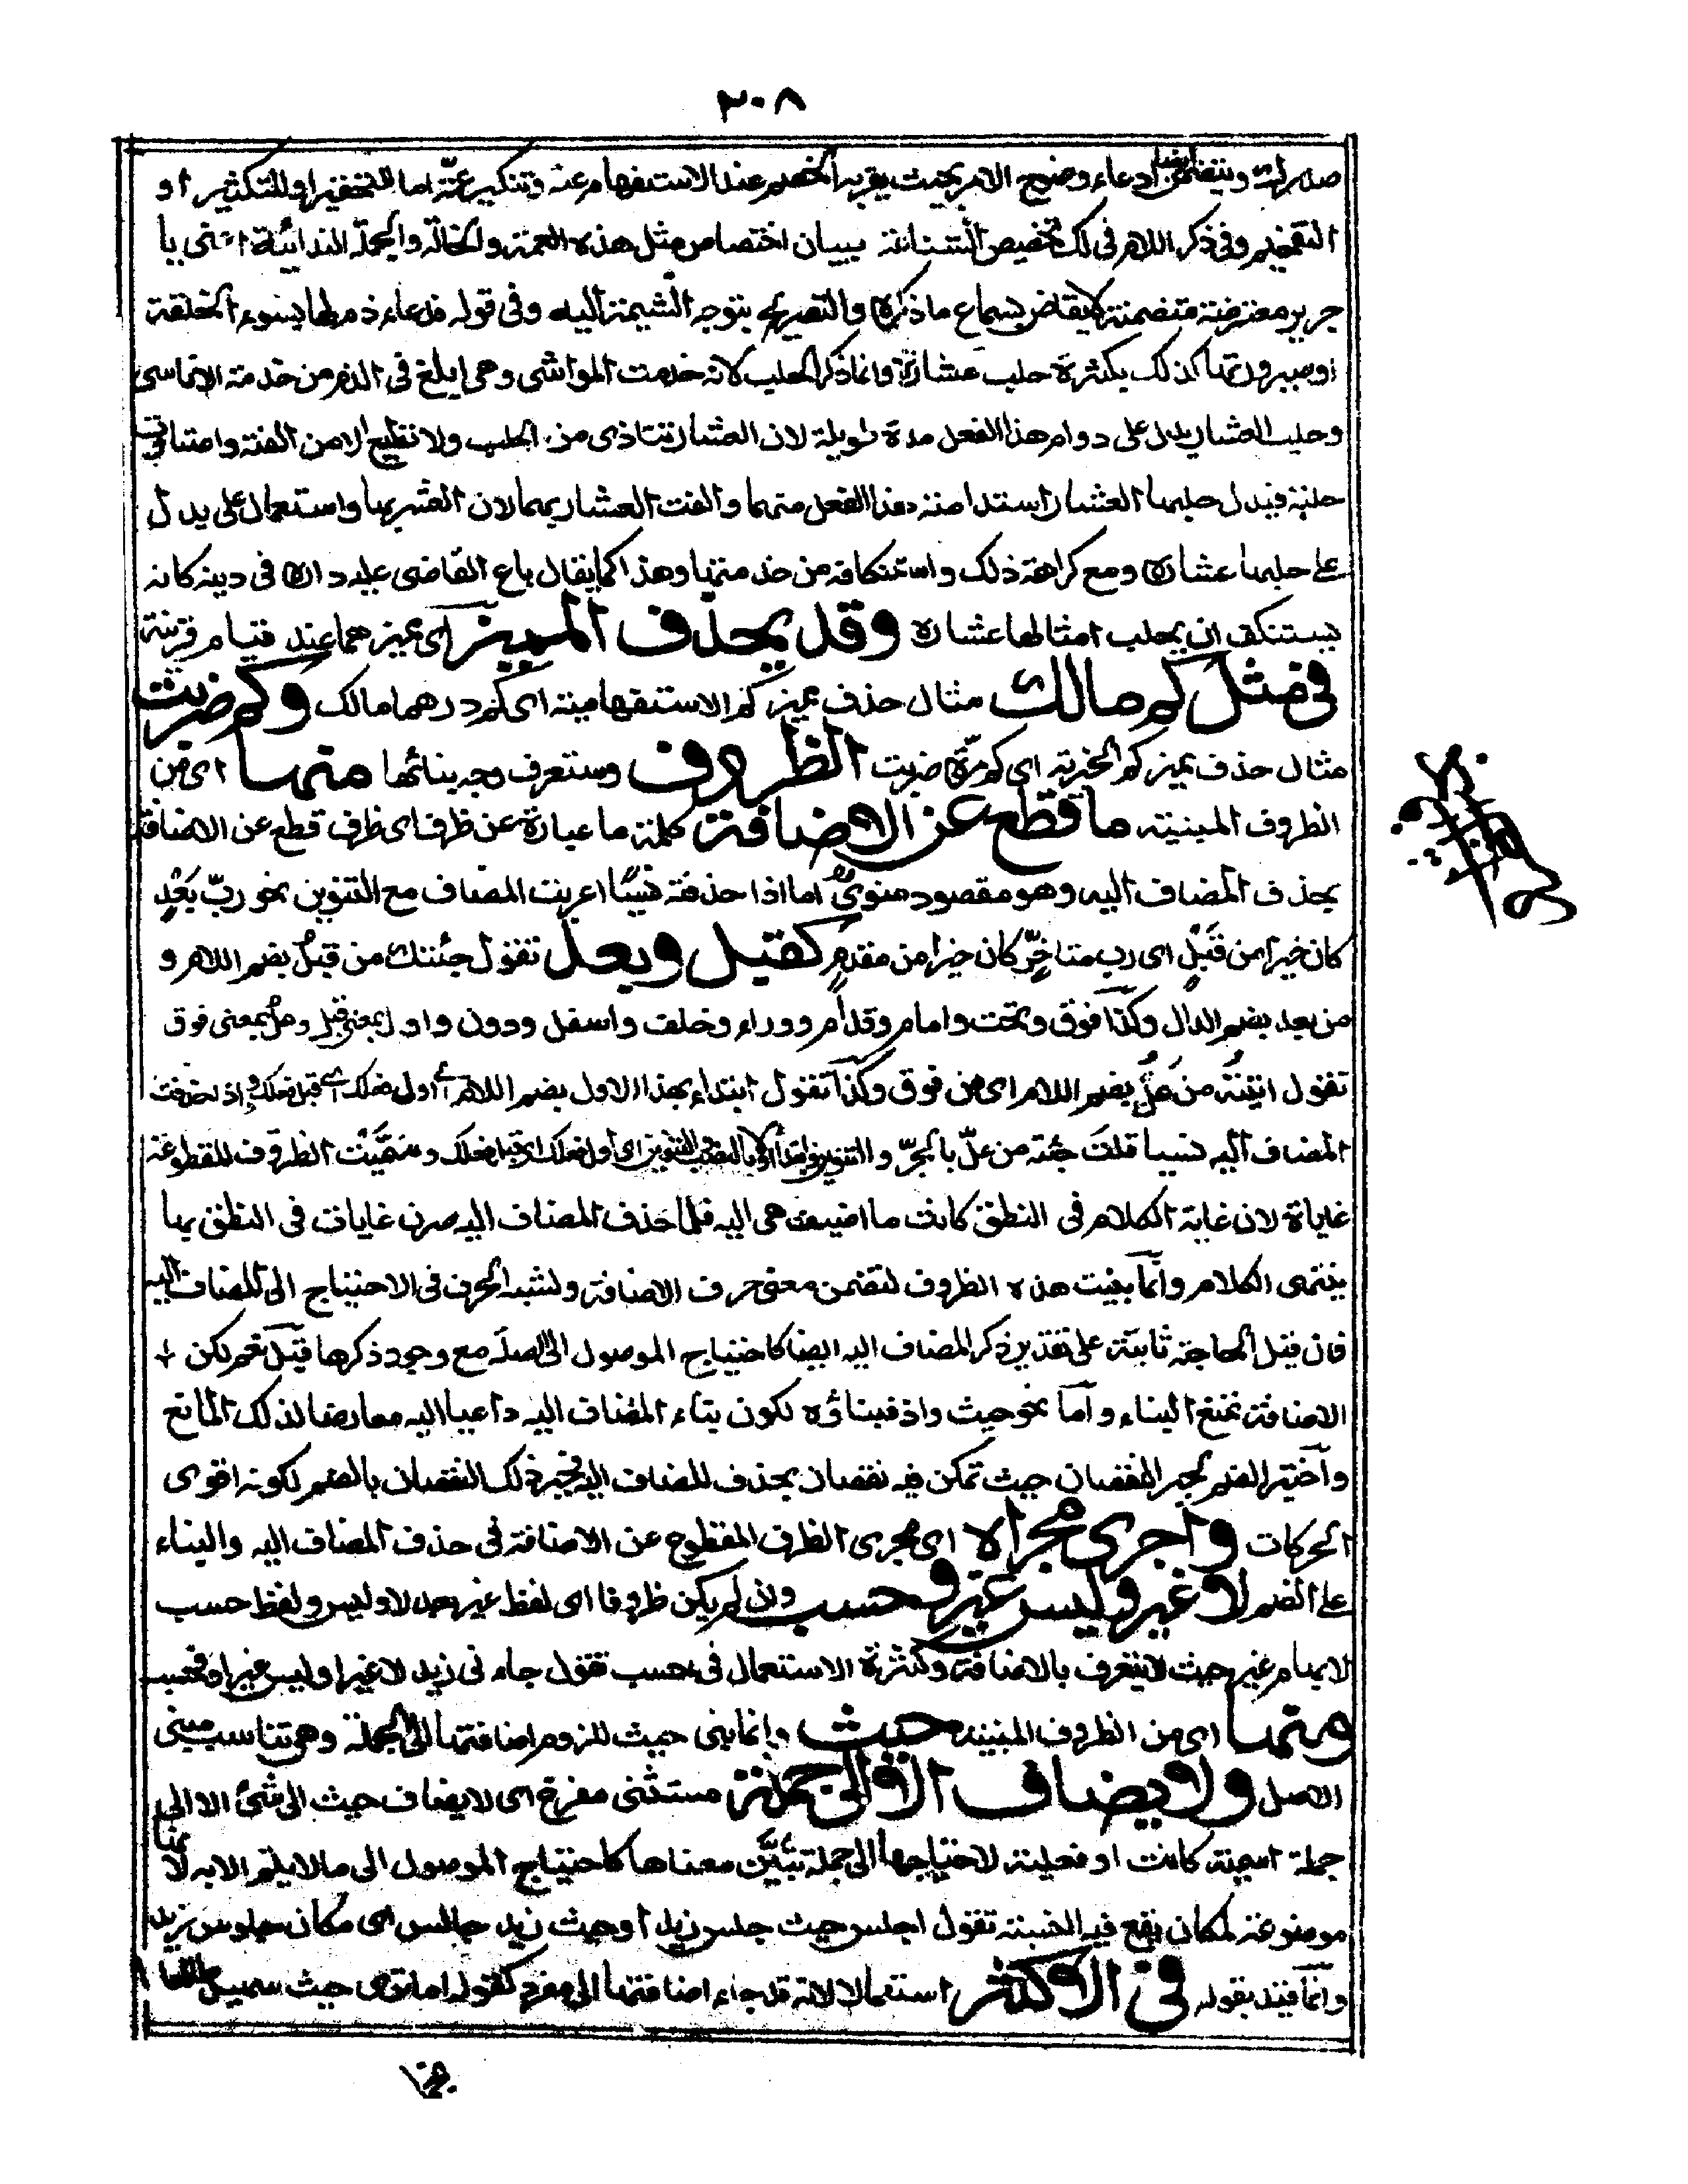 ٢٠٨
صدارت وتتضمن ايضا ادعاء وضوح الامر بحيث يقر به الخصم عند الاستفهام عنه وتنكير عمّة اما للتحقير او للتكثير او
التفخيم وفي ذكر اللام في لك تخصيص الشناعة ببيان اختصاص مثل هذه العمة والخالة والجملة الندائية اعني يا
جرير معترضة متضمنة لايقاض بسماع ما ذكره والتصريح بتوجه الشيمة اليه وفي قوله فدعاء ذم لها بسوء الخلقة
او سيرورتها كذلك بكثرة حلب عشاره وانما ذكر الحلب لانه خدمة المواشي وهي ابلغ في الذم من خدمة الاناسي
وحلب العشار يدل على دوام هذا الفعل مدة طويلة لان العشار تتاذى من الحلب ولا تطيع الا من الفته وامتدت
حلبه فيدل حلبها العشار استدامة هذا الفعل منهما والفت العشار بهما لان العشر بها واستعمال على يدل
على حلبها عشاره ومع كراهة ذلك واستنكافه من خدمتها وهذا كما يقال باع القاضي عليه داره في دينه كانه
يستنكف ان يحلب امثالها عشاره وقد يحذف المميز اي مميزهما عند قيام قرينة
في مثل كم مالك مثال حذف مميز كم الاستفهامية اي كم درهما مالك وكم ضربت
مثال حذف مميز كم الخبرية اي كم مرّة ضربت الظروف وستعرف وجه بنائها منها اي من
الظروف المبنية ما قطع عن الاضافة كلمة ما عبارة عن ظرف اي ظرف قطع عن الاضافة
بحذف المضاف اليه وهو مقصود منويٌّ اما اذا حذفته نسيًا اعربت المضاف مع التنوين نحو ربّ بَعْدٍ
كان خيرا من قَبْلٍ اي رب متاخّرٍ كان خيرا من مقدمٍ كقبل وبعد تقول جئتك من قبلُ بضم اللام و
من بعد بضم الدال وكذا فوق وتحت وامام وقدام ووراء وخلف واسفل ودون واول بمعنى قبل وعلُ بمعنى فوق
تقول اتيتُه من علُ بضم اللام اي من فوق وكذا تقول ابتداء بهذا الاول بضم اللام اي اول فعلك اي قبل فعلك واذ حذفت
المضاف اليه نسيا قلت جئته من علٍّ بالجرّ والتنوين وابدأ اولا بالنصب والتنوين اي اول فعلك اي قبل فعلك وسمّيت الظروف المقطوعة
غاياة لان غاية الكلام في النطق كانت ما اضيفت هي اليه فلما حذف المضاف اليه صرن غايات في النطق بها
ينتهي الكلام وانما بنيت هذه الظروف لتضمن معنى حرف الاضافة ولشبه الحرف في الاحتياج الى المضاف اليه
فان قيل الحاجة ثابتة على تقدير ذكر المضاف اليه ايضا كاحتياج الموصول الى الصلة مع وجود ذكرها قيل نعم لكن
الاضافة تمنع البناء واما نحو حيث واذ فبناؤه لكون بناء المضاف اليه داعيا اليه معارضا لذلك المانع
واختير الضم لجبر النقصان حيث تمكن فيه نقصان بحذف المضاف اليه فجبر ذلك النقصان بالضم لكونه اقوى
الحركات واجرى مجراه اي مجرى الظرف المقطوع عن الاضافة في حذف المضاف اليه والبناء
على الضم لا غير وليس غير وحسب وان لم يكن ظروفا اي لفظ غير بعد لا وليس ولفظ حسب
لابهام غير حيث لا يتعرف بالاضافة وكثرة الاستعمال في حسب تقول جاءني زيد لا غير او ليس غير او فحسب
ومنها اي من الظروف المبنية حيث وانما بنى حيث للزوم اضافتها الى الجملة وهي تناسب مبني
الاصل ولا يضاف الا الى جملة مستثنى مفرغ اي لا يضاف حيث الى شئ الا الى
جملة اسمية كانت او فعلية لاحتياجها الى جملة تبيّن معناها كاحتياج الموصول الى ما لا يلتم الا به لانها
موضوعة لمكان يقع فيه النسبة تقول اجلس حيث جلس زيد او حيث زيد جالس اي مكان جلوس زيد
وانما قيد بقوله في الاكثر استعمالا لانه قد جاء اضافتها الى مفرد كقوله اما ترى حيث سهيل طالعا